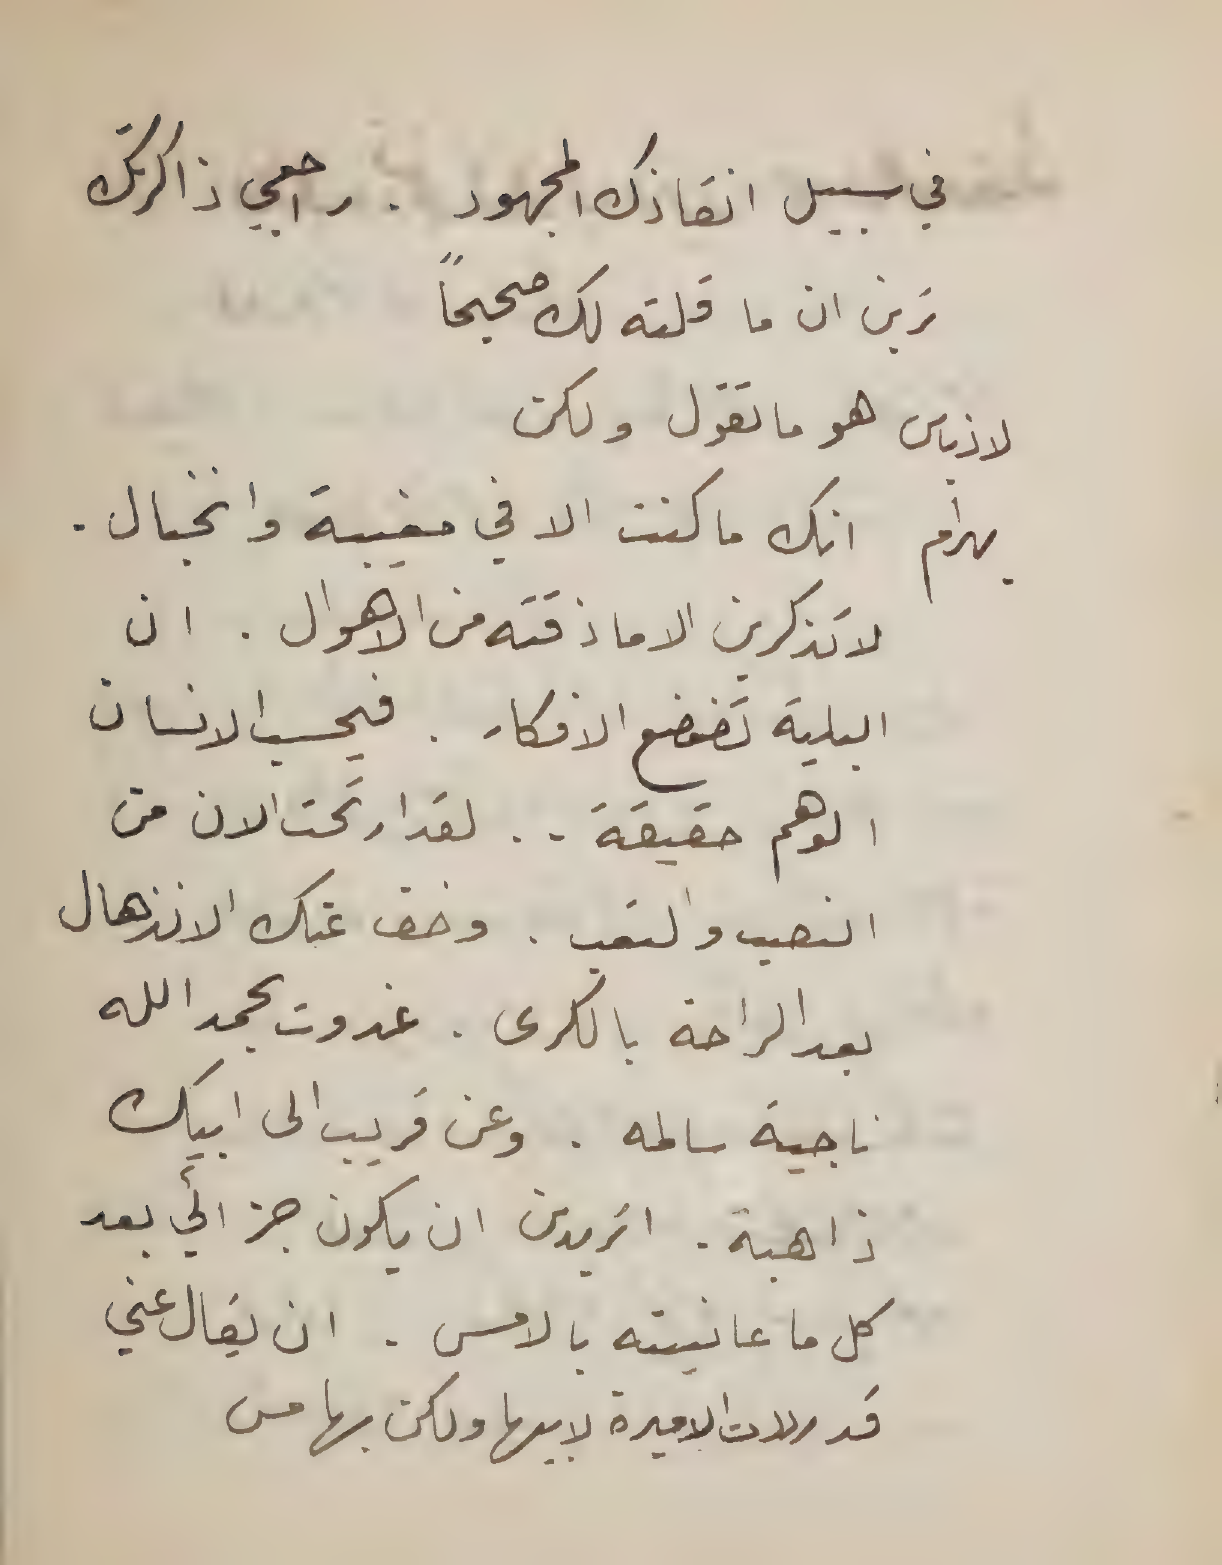 في سبيل انقاذك المجهود . راجعي ذاكرتك
ترين ان ما قلته لك صحيحاً
لاذياس هو ما تقول ولكن
بهرام انك ما كنت الا في مغيبة وانخبال .
لا تذكرين الا ما ذقته من الاهوال . ان
البلية تضعضع الافكار . فيحسب الانسان
الوهم حقيقة . . لقد ارتحت الان من
النصب والتعب . وخف عنك الانذهال
بعد الراحة بالكرى . غدوت بحمد الله
ناجية سالمه . وعن قريب الى ابيك
ذاهبة . اتريدين ان يكون جزائي بعد
كل ما عانيته بالامس . ان يقال عني
قد رددت الاميرة لابيها ولكن بها مس